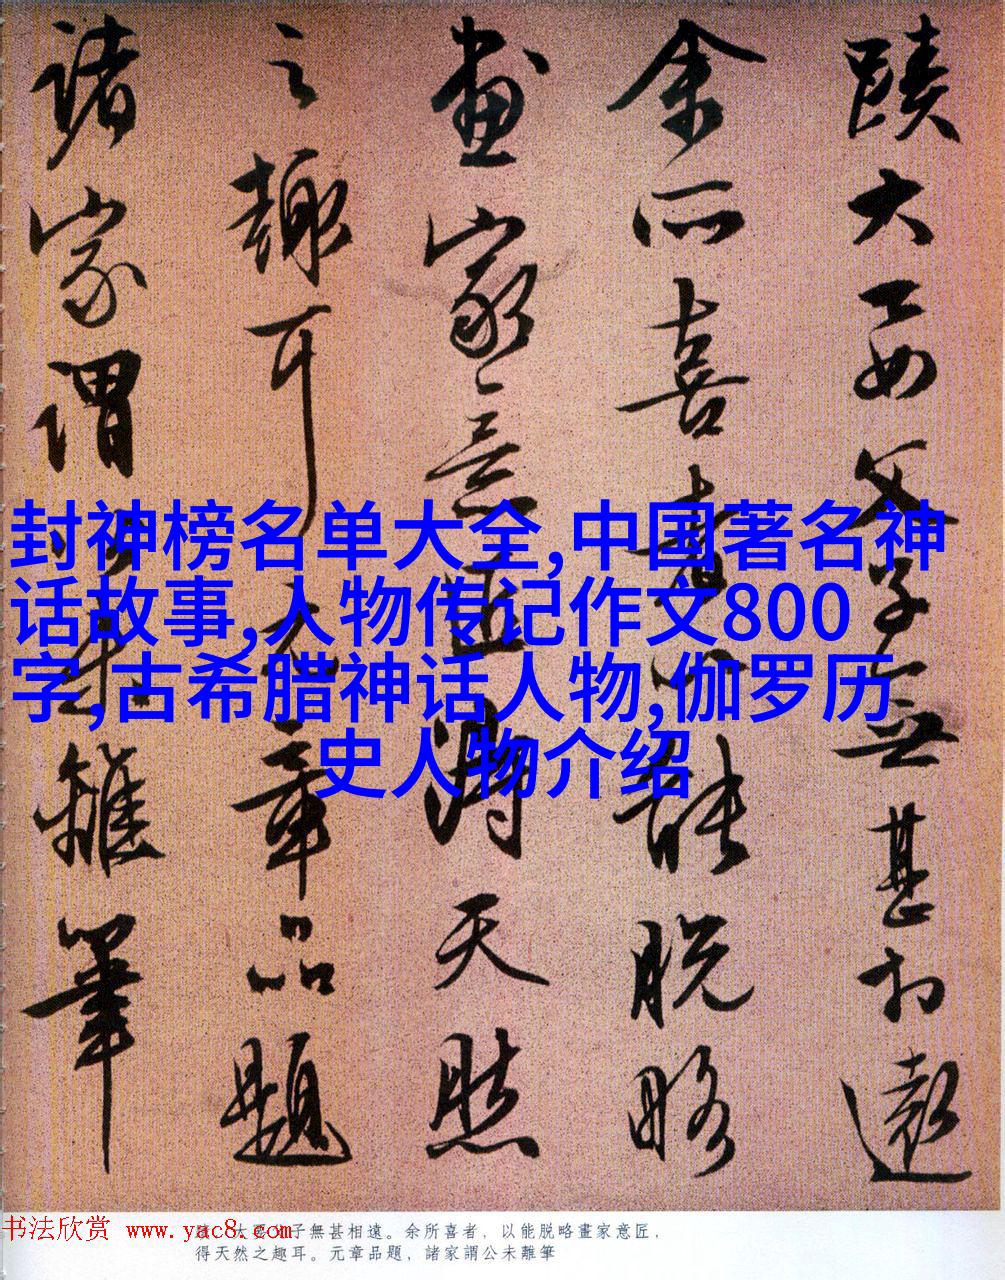 蹟大要父子無甚相遠
余所喜者以能脱略
畫家意匠得天然
之趣耳元章品題
諸家謂公未離筆
封神榜名单大全,中国著名神
话故事,人物传记作文800
字,古希腊神话人物,伽罗历
史人物介绍
书法欣赏 www.yac8.com
蹟，大要父子無甚相遠。余所喜者，以能脱略畫家意匠，
得天然之趣耳。元章品題，諸家謂公未離筆